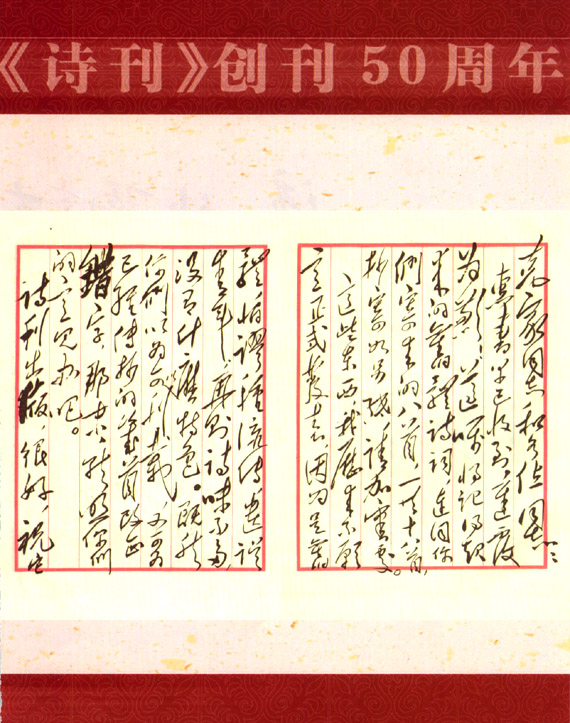 《诗刊》创刊50周年
克家同志和各位同志：
惠書早已收到，遲復
为歉！遵嘱将记得起
来的舊體诗词，連同你
们寄来的八首，一共十八首，
抄寄如另纸，请加審处。
這些东西，我歷来不願
意正式發表，因为是舊
體，怕谬種流传，贻误
青年；再则诗味不多，
没有什麽特色。既然
你们以为可以刊载，又可为
已經传抄的幾首改正
錯字，那末，就照你们
的意见办吧。
诗刊出版，很好，祝它